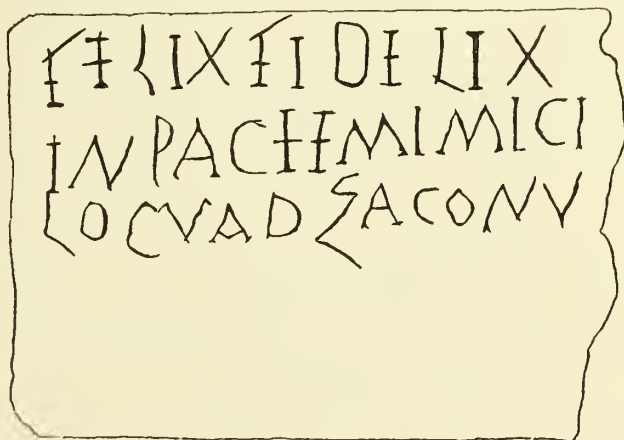 FELIX FIDELIX
IN PACE EMIMICI
LOCV AD ZACONV